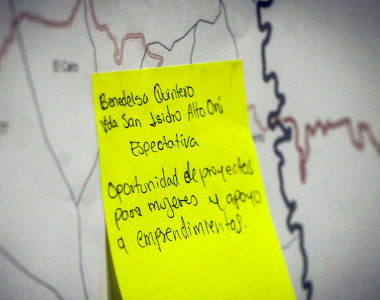 El Cairo
Benedelsa Quintero
Vda San Isidro Alto Oní
Espectativa
Oportunidad de proyectos
para mujeres y apoyo
a emprendimientos.